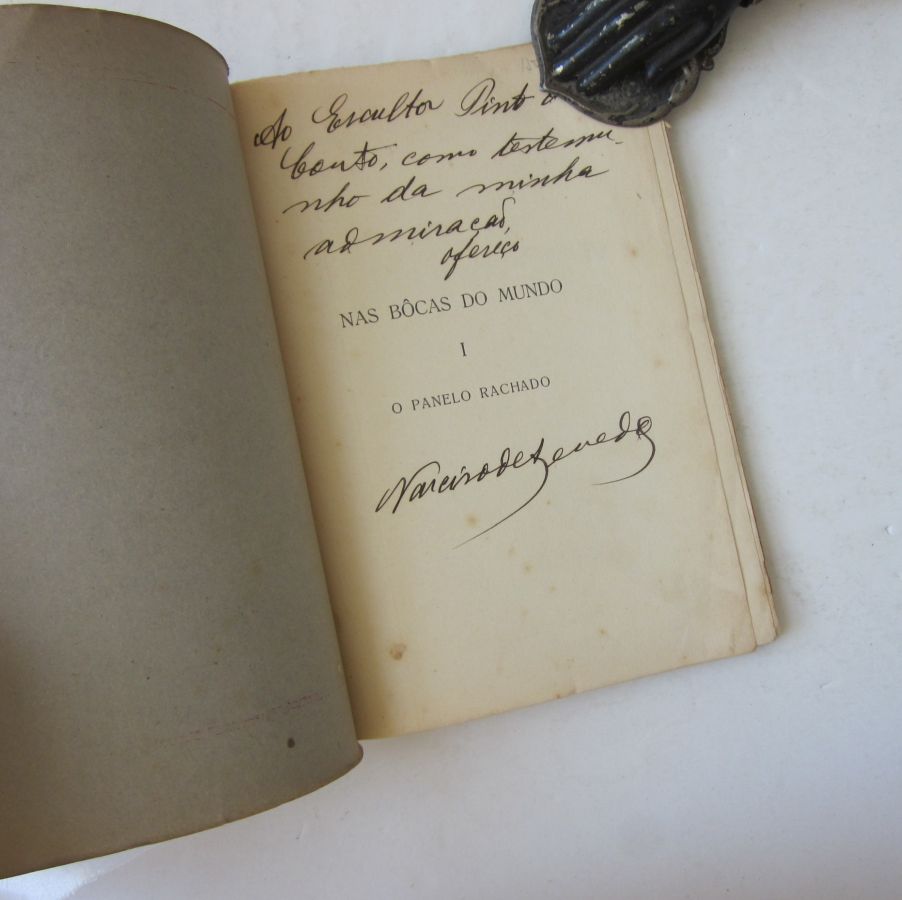 Ao Escultor Pinto
Couto, como testemu-
nho da minha
admiração,
ofereço
NAS BÔCAS DO MUNDO
I
O PANELO RACHADO
Narciso de Azevedo